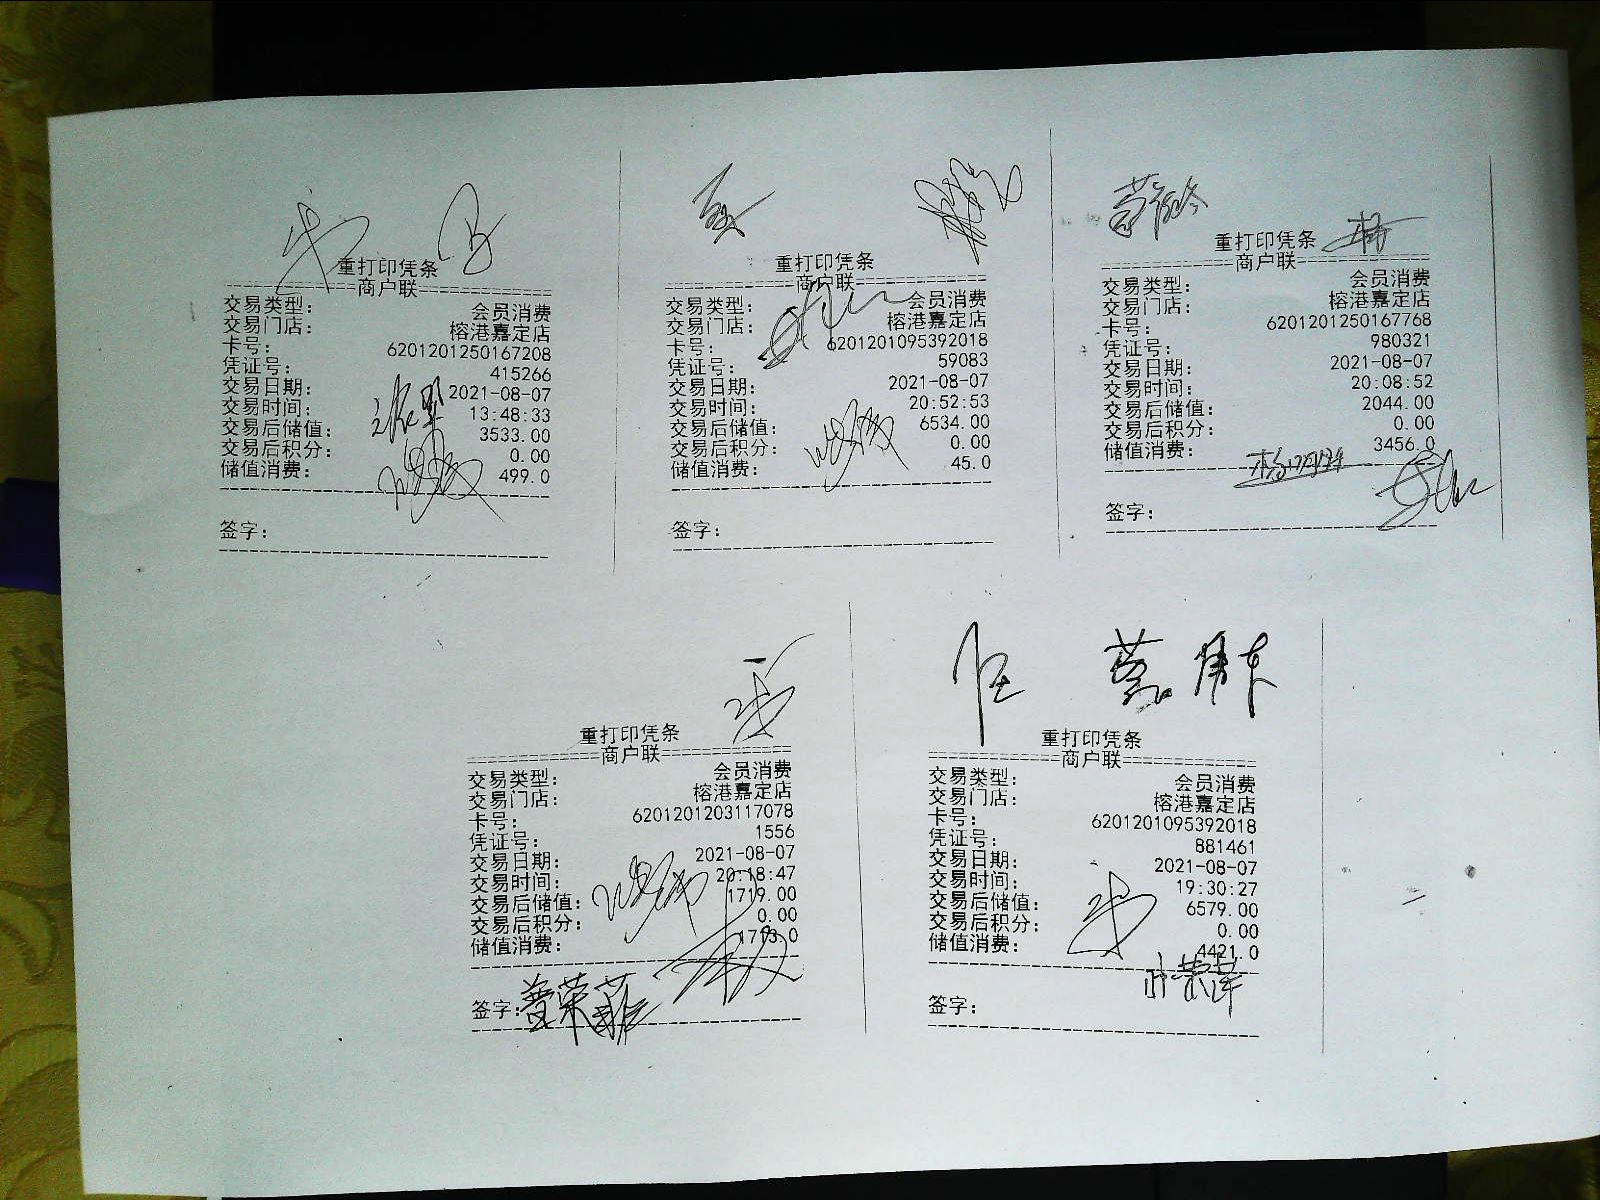 重打印凭条
==============商户联==============
交易类型： 会员消费
交易门店： 榕港嘉定店
卡号： 6201201250167208
凭证号： 415266
交易日期： 2021-08-07
交易时间： 13:48:33
交易后储值： 3533.00
交易后积分： 0.00
储值消费： 499.0
签字：
重打印凭条
==============商户联==============
交易类型： 会员消费
交易门店： 榕港嘉定店
卡号： 6201201095392018
凭证号： 59083
交易日期： 2021-08-07
交易时间： 20:52:53
交易后储值： 6534.00
交易后积分： 0.00
储值消费： 45.0
签字：
重打印凭条
==============商户联==============
交易类型： 会员消费
交易门店： 榕港嘉定店
卡号： 6201201250167768
凭证号： 980321
交易日期： 2021-08-07
交易时间： 20:08:52
交易后储值： 2044.00
交易后积分： 0.00
储值消费： 3456.0
签字：
重打印凭条
==============商户联==============
交易类型： 会员消费
交易门店： 榕港嘉定店
卡号： 6201201203117078
凭证号： 1556
交易日期： 2021-08-07
交易时间： 20:18:47
交易后储值： 1719.00
交易后积分： 0.00
储值消费： 1713.0
签字：
重打印凭条
==============商户联==============
交易类型： 会员消费
交易门店： 榕港嘉定店
卡号： 6201201095392018
凭证号： 881461
交易日期： 2021-08-07
交易时间： 19:30:27
交易后储值： 6579.00
交易后积分： 0.00
储值消费： 4421.0
签字：